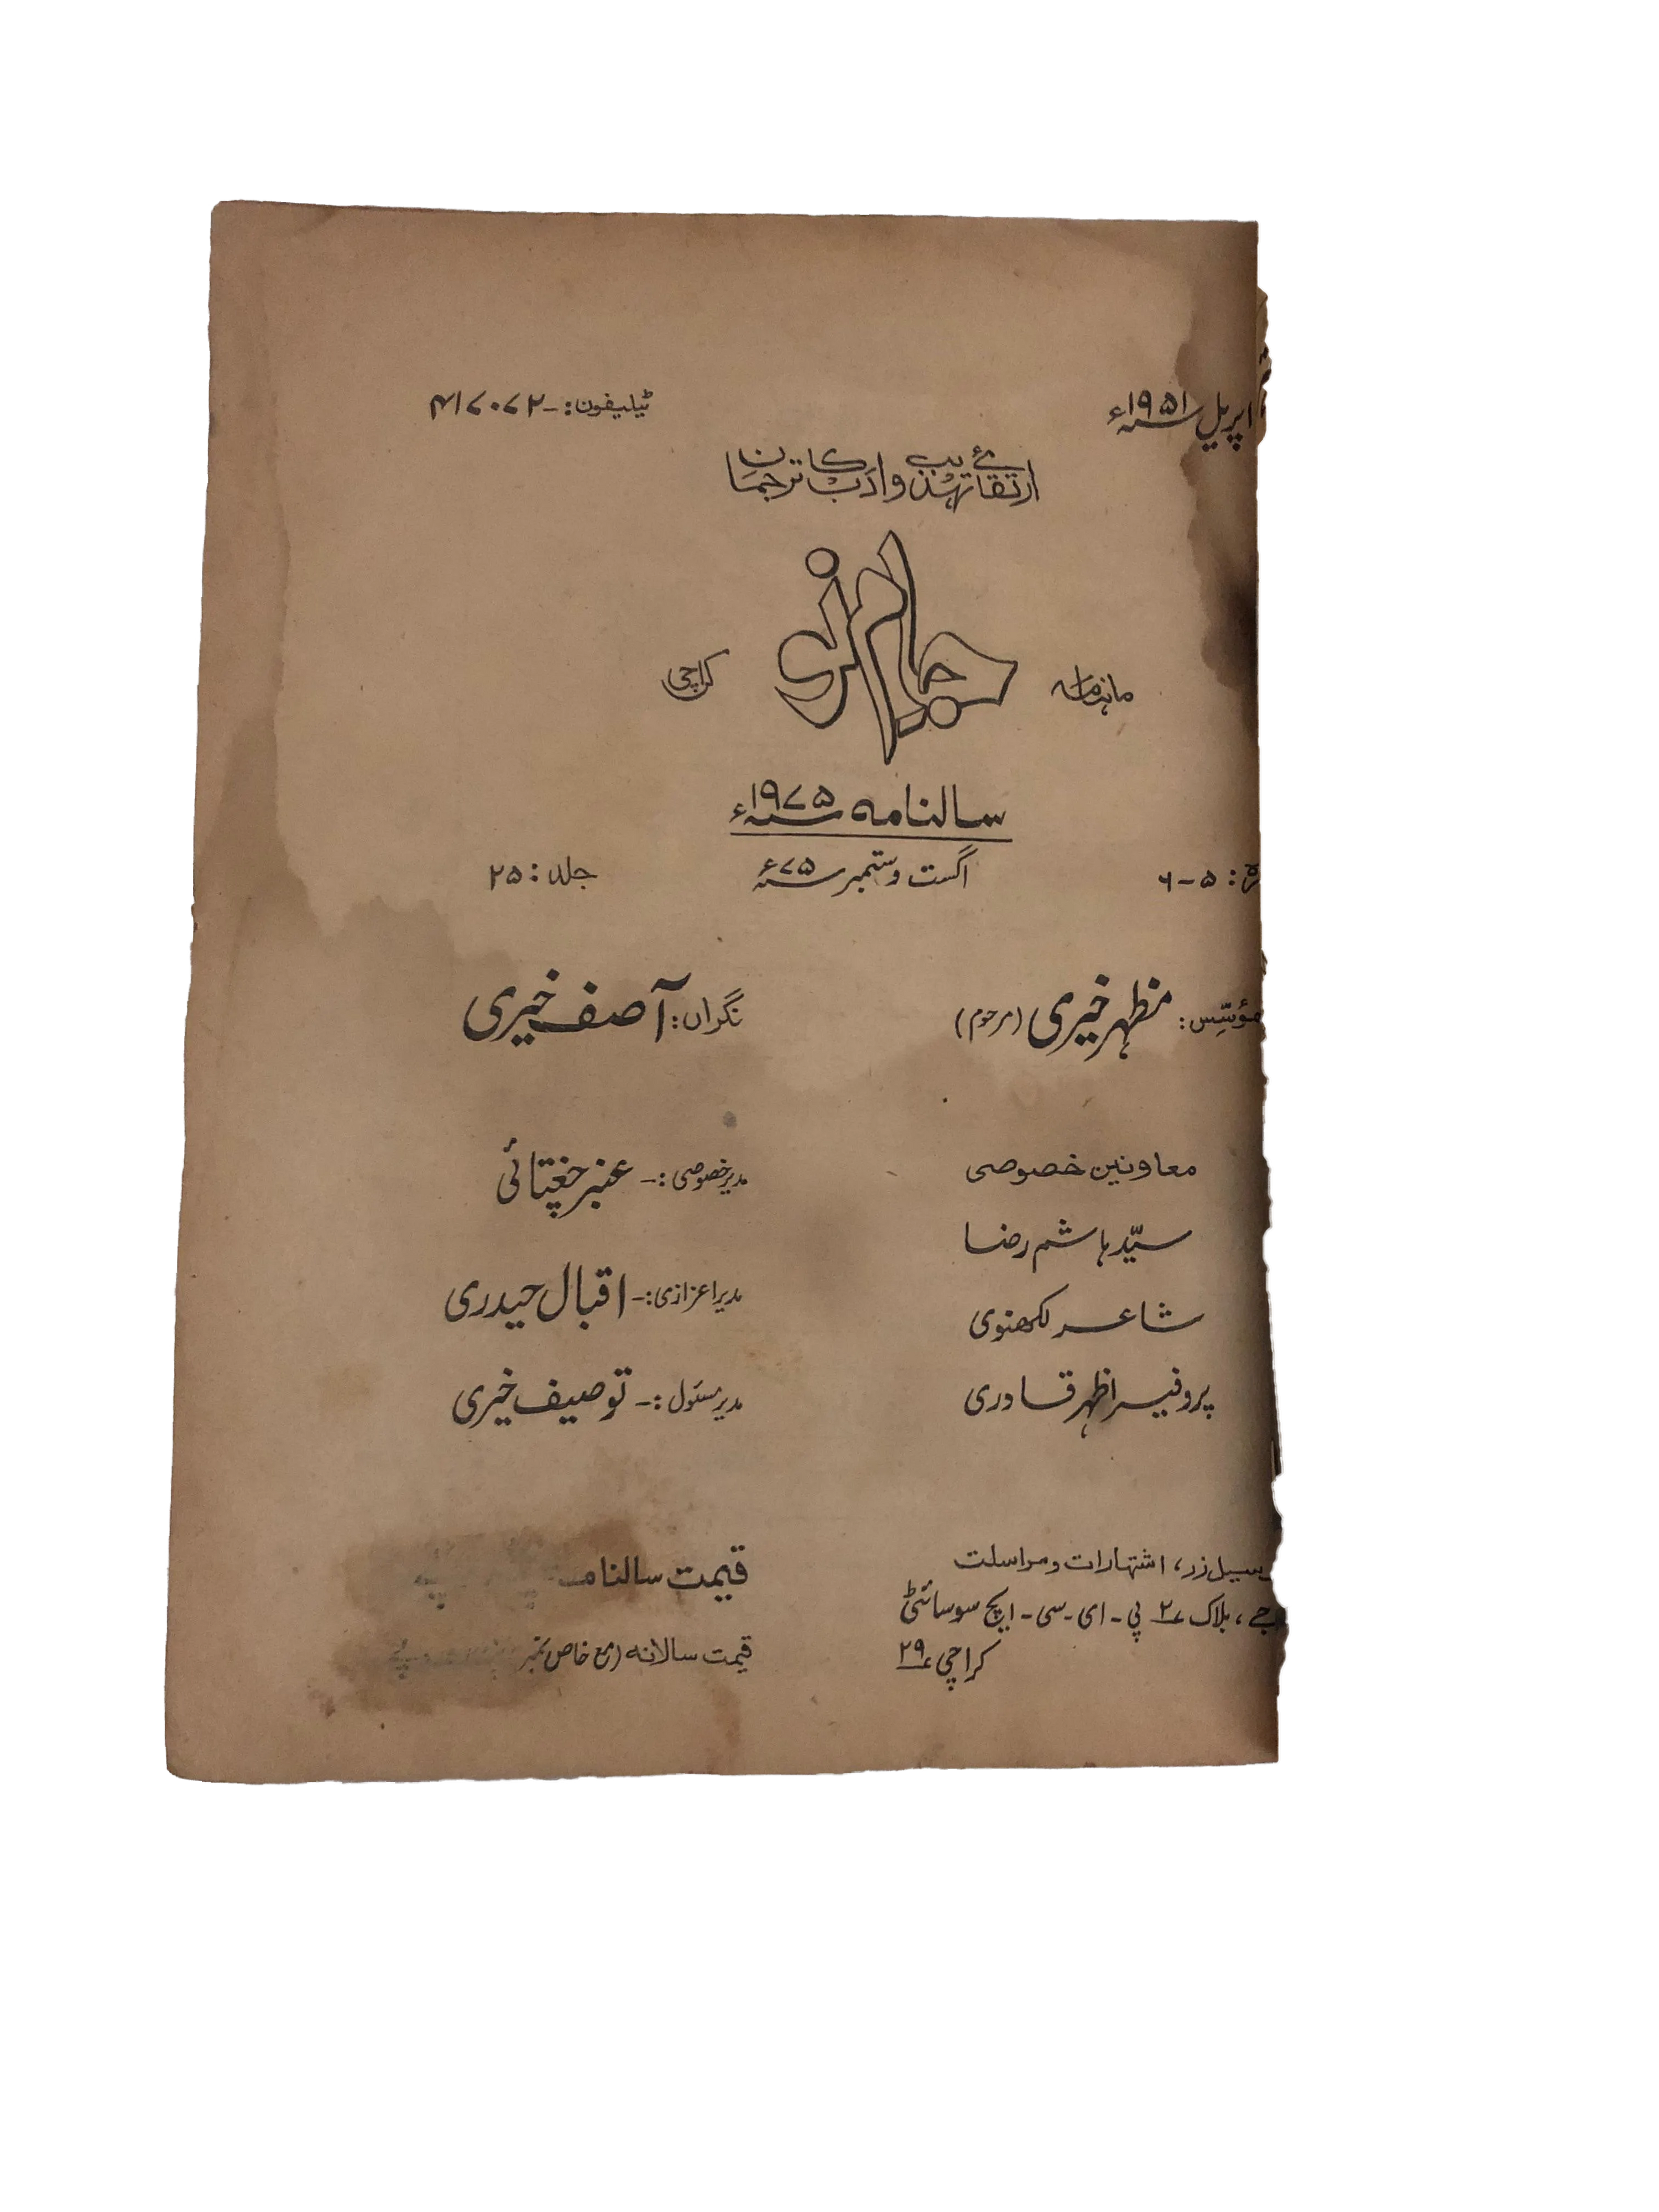 اپریل ۱۹۵۱ء
ٹیلیفون:- ۴۱۷۰۷۲
ارتقائے تہذیب وادب کا ترجمان
ماہنامہ جامِ نو کراچی
سالنامہ ۱۹۷۵ء
رہ: ۵-۶ اگست و ستمبر ۷۵ء جلد: ۲۵
مؤسّس: مظہر خیری (مرحوم)
نگراں: آصف خیری
معاونین خصوصی
سیّد ہاشم رضا
شاعر لکھنوی
پروفیسر اظہر قادری
مدیر خصوصی:- عنبر چغتائی
مدیر اعزازی:- اقبال حیدری
مدیر مسئول:- توصیف خیری
سیل زر، اشتہارات و مراسلت
جے، بلاک ۲ پی-ای-سی-ایچ سوسائٹی
کراچی ۲۹
قیمت سالنامہ
قیمت سالانہ (مع خاص نمبر